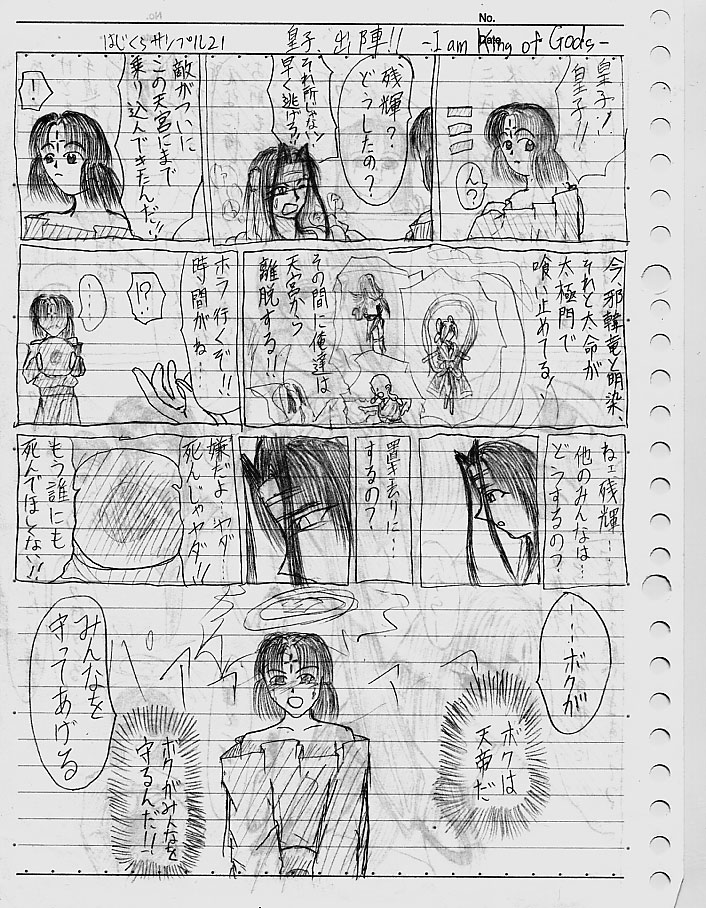 No.
Date
はじくらサンプル21
皇子、出陣!! -I am King of Gods-
皇子!
皇子!!
ん?
残輝?
どうしたの?
それ所じゃない
早く逃げろ!!
敵がついに
この天宮にまで
乗り込んできたんだ!!
!
今、邪韓竜と明染、
それと太命が
太極門で
喰い止めてる!
その間に俺達は
天宮から
離脱する!!
ホラ行くぞ!!
時間がね……
!?
…
ねェ残輝…
他のみんなは…
どうするの?
置き去りに…
するの?
嫌だよ…ヤダ…
死んじゃヤダ!!
もう誰にも
死んでほしくない!!
…ボクが
ボクは
天帝だ
みんなを
守ってあげる
ボクがみんなを
守るんだ!!